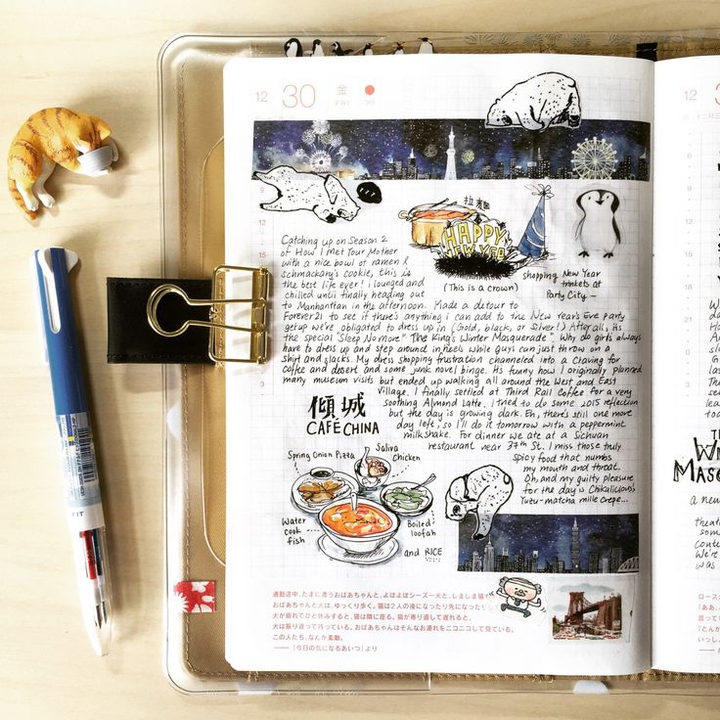 12 30 金
FRI
拉麺
HAPPY
NEW YEAR
(This is a crown)
shopping New Year
trinkets at
Party City –
Catching up on Season 2
of How I Met Your Mother
with a nice bowl of ramen &
schmackary's cookie, this is
the best life ever! i lounged and
chilled until finally heading out
to Manhanttan in the afternoon. Made a detour to
Forever21 to see if there's anything i can add to the New Year's Eve party
getup we're obligated to dress up in (Gold, black, or silver!) After all, its
the special "Sleep No More" "The King's Winter Masquerade". Why do girls always
have to dress up and step around in heels while guys can just throw on a
shirt and slacks. My dress shopping frustration channeled into a craving for
coffee and dessert and some junk novel binge. Its funny how I originally planned
many museum visits but ended up walking all around the West and East
Village. I finally settled at Third Rail Coffee for a very
soothing Almond Latte. I tried to do some 2015 reflection
but the day is growing dark. Eh, there's still one more
day left, so I'll do it tomorrow with a peppermint
milkshake. For dinner we ate at a Sichuan
restaurant near 37th St. I miss those truly
spicy food that numbs
my mouth and throat.
Oh and my guilty pleasure
for the day is Chikalicious's
Yuzu-matcha mille crepe...
傾城
CAFE CHINA
Spring Onion Pizza
Saliva
Chicken
Water
cook
fish
Boiled
loofah
and RICE
通勤途中、たまに遭うおばあちゃんと、よぼよぼシーズー犬と、しましま猫
おばあちゃんと犬は、ゆっくり歩く。猫は2人の後になったり先になった
犬が疲れてひと休みすると、猫は隣に座る。猫が寄り道して遅れると、
犬は振り返って待っている。おばあちゃんはそんなお連れをニコニコして見ている。
この人たち、なんか素敵。
――『今日の気になるあいつ』より
12